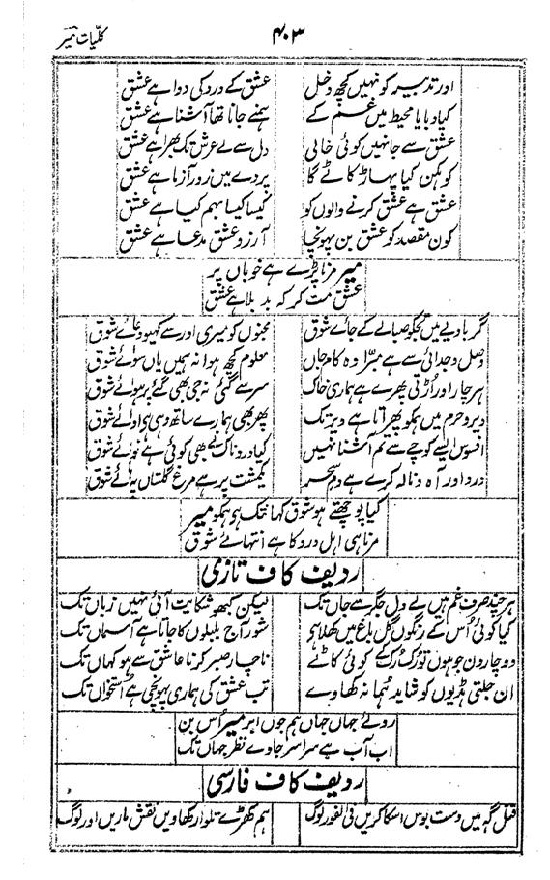 کلیات میر
۴۰۳
اور تدبیر کو نہیں کچھ دخل عشق کے درد کی دوا ہے عشق
کیا دبایا محیط میں غم کے ہمنے جانا تھا آشنا ہے عشق
عشق سے جا نہیں کوئی خالی دل سے لے عرش تک بھرا ہے عشق
کوہکن کیا پہاڑ کاٹے گا پردے میں زور آزما ہے عشق
عشق ہے عشق کرنے والوں کو کیسا کیسا بہم کیا ہے عشق
کون مقصد کو عشق بن پہونچا آرزو عشق مدعا ہے عشق
میر مرنا پڑے ہے خوباں پر
عشق مت کر کہ بد بلا ہے عشق
گر بادیے میں تجکو صبا لے کے جائے شوق مجنوں کو میری اور سے کہیو دعائے شوق
وصل و جدائی سے ہے مبرّا وہ کام جاں معلوم کچھ ہوا نہ ہمیں یاں سوائے شوق
ہر چار اور اڑتی پھرے ہے ہماری خاک سر سے گئی نہ جی بھی گئے پر ہوائے شوق
دیر و حرم میں ہمکو پھراتا ہے دیر تک پھر بھی ہمارے ساتھ وہی ہے ادائے شوق
افسوس ایسے کوچے سے تم آشنا نہیں کیا دردناک لے بھی کوئی ہے نوائے شوق
درد اور آہ و نالہ کرے ہے دم سحر یکمشت پر ہے مرغ گلستاں پہ ہائے شوق
کیا پوچھتے ہو شوق کہاں تک ہے ہمکو میر
مرنا ہی اہل درد کا ہے انتہائے شوق
ردیف کاف تازی
ہر چند صرف غم ہیں لے دل جگر سے جاں تک لیکن کبھو شکایت آئی نہیں زباں تک
کیا کوئی اُس کے رنگوں گل باغ میں کھلا ہے شور آج بلبلوں کا جاتا ہے آسماں تک
دو چار دن جو ہوں تو رک رک کے کوئی کاٹے ناچار صبر کرنا عاشق سے ہو کہاں تک
ان جلتی ہڈیوں کو شاید ہما نہ کھاوے تب عشق کی ہماری پہونچی ہے استخواں تک
روئے جہاں جہاں ہم جوں ابر میر اُس بن
اب آب ہے سراسر جاوے نظر جہاں تک
ردیف کاف فارسی
قتل گہ میں دست بوس اسکا کریں فی الفور لوگ ہم کھڑے تلوار کھاویں نقش ماریں اور لوگ